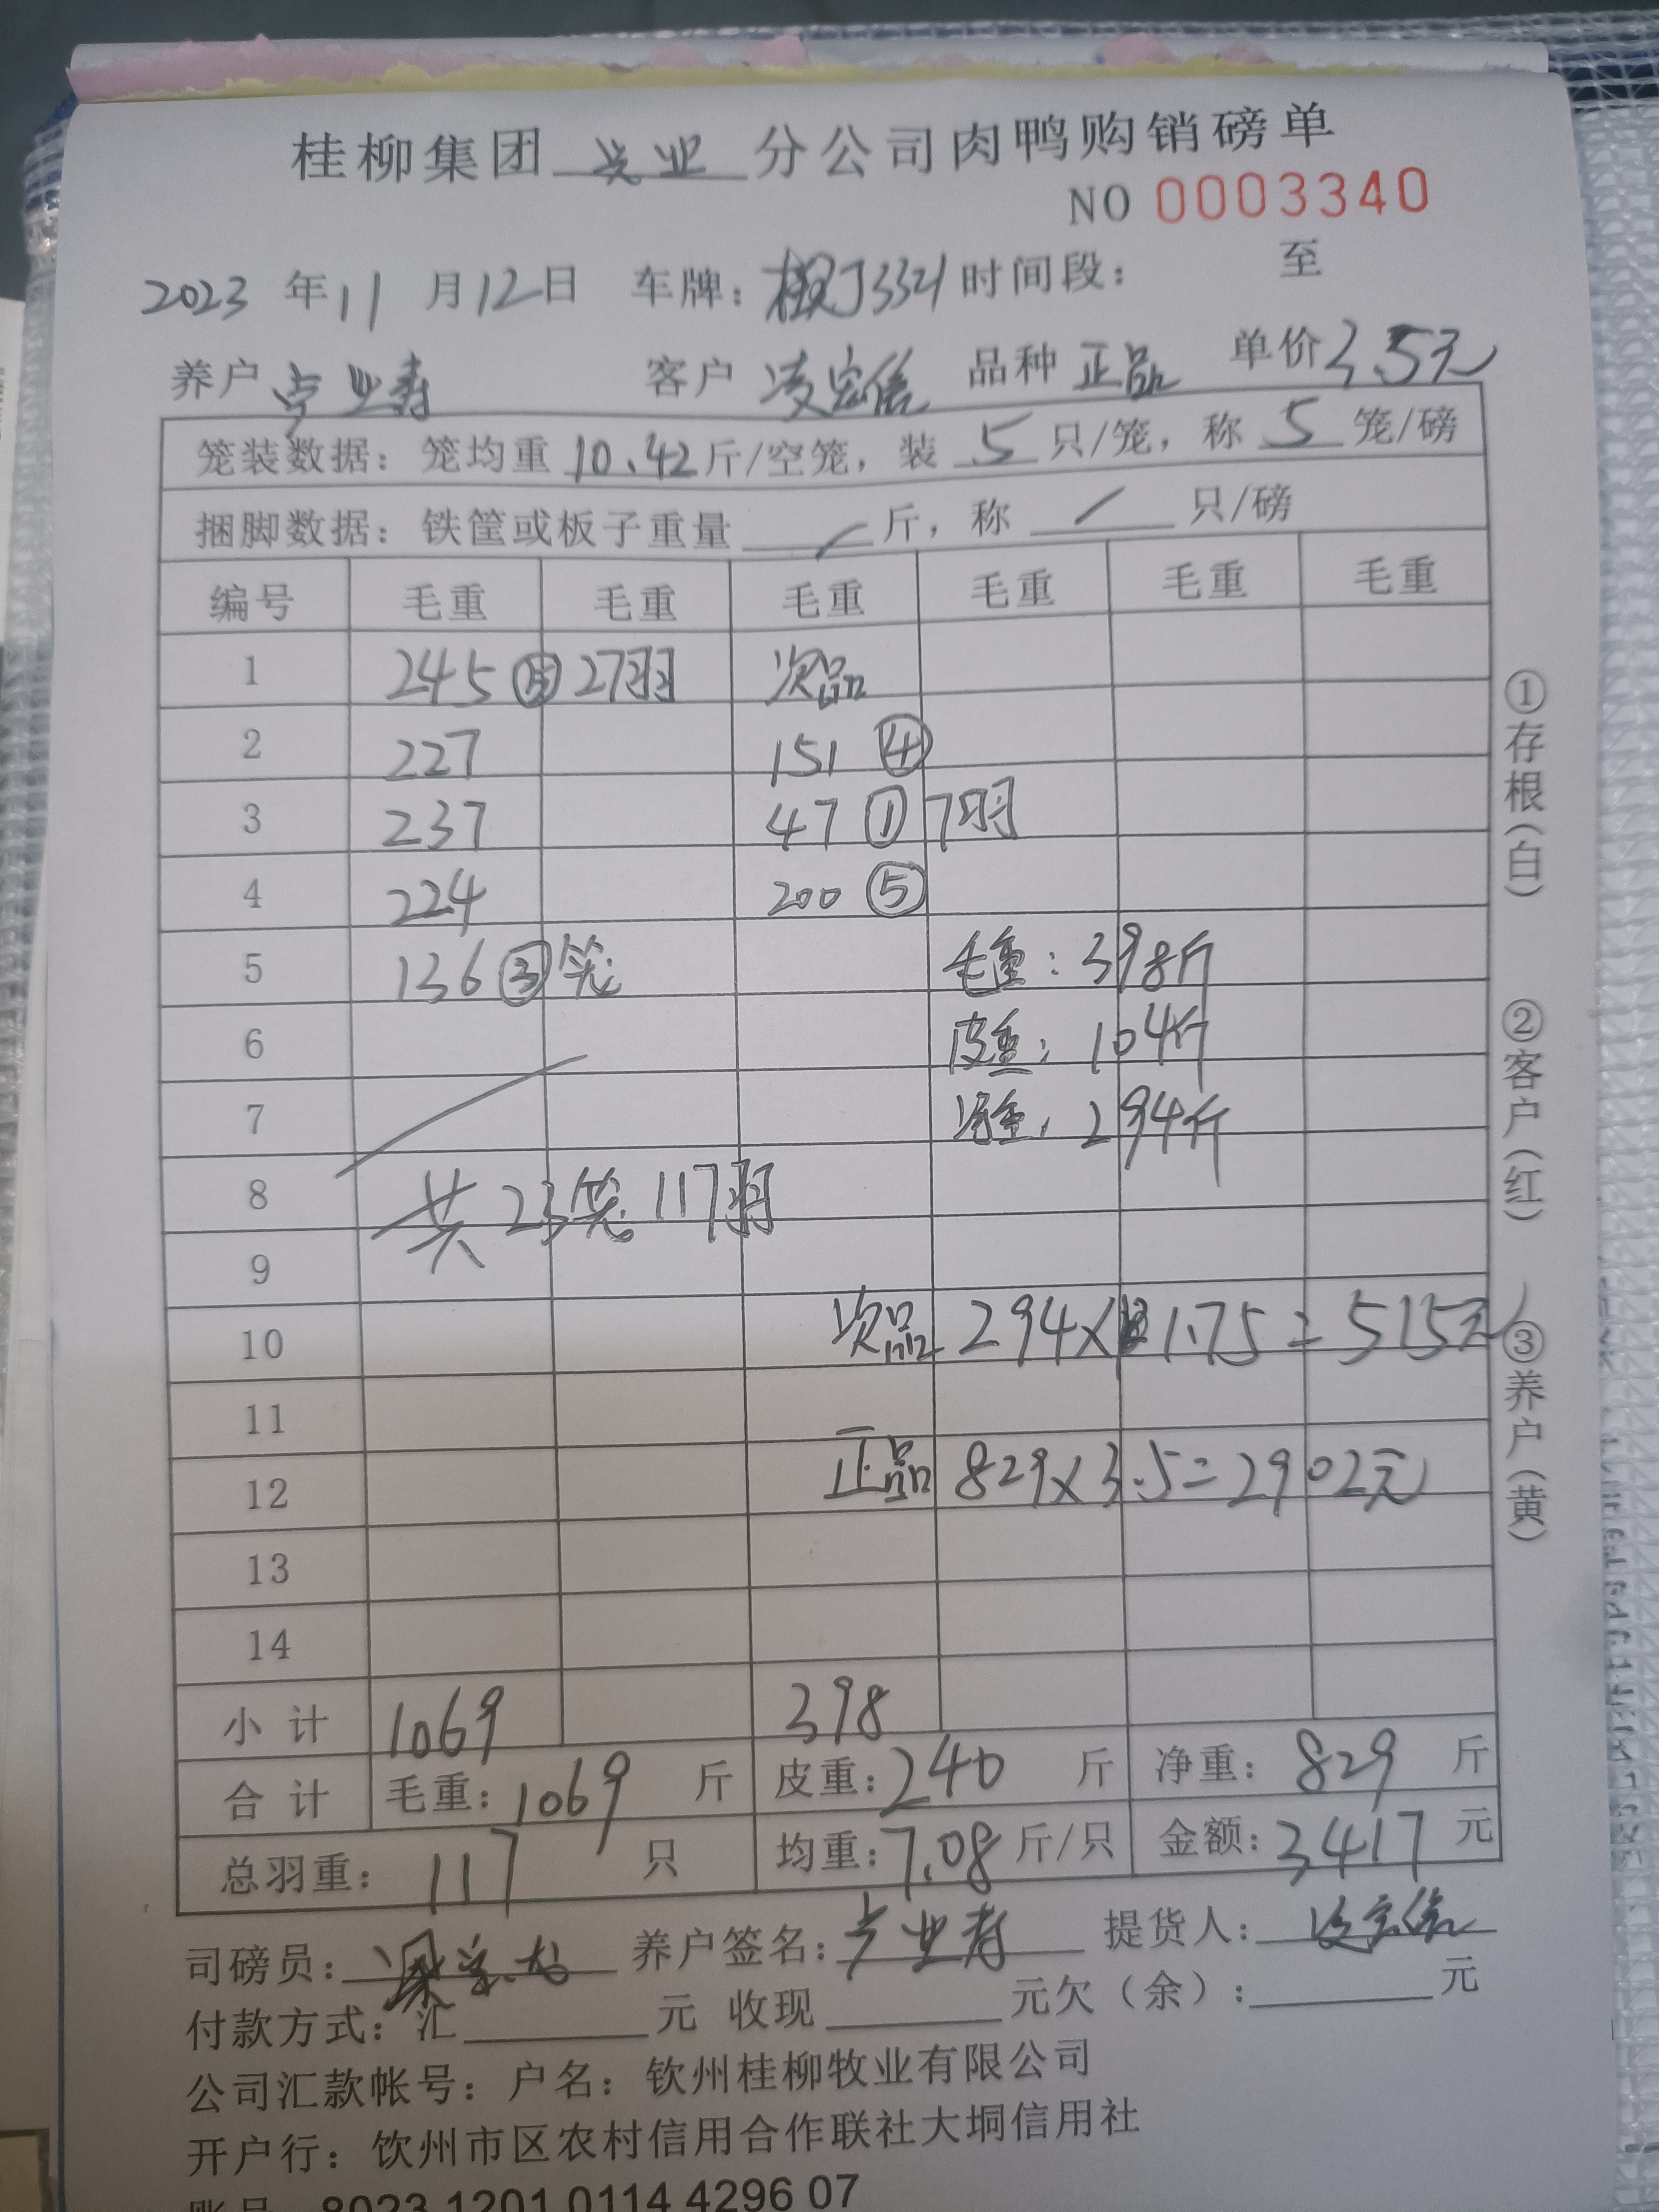 桂柳集团 兴业 分公司肉鸭购销磅单
NO 0003340
2023 年 11 月 12 日 车牌： 3321 时间段： 至
养户 卢业寿 客户 凌宏信 品种 正品 单价 3.5元
笼装数据：笼均重 10.42 斤/空笼，装 5 只/笼，称 5 笼/磅
捆脚数据：铁筐或板子重量 / 斤，称 / 只/磅
编号 毛重 毛重 毛重 毛重 毛重 毛重
1 245 ⑤ 27羽 次品
2 227 151 ④
3 237 47 ① 7羽
4 224 200 ⑤
5 136 ③ 笼 毛重：398斤
6 皮重：104斤
7 净重：294斤
8 共23笼 117羽
9
10 次品 294×1.75=515元
11
12 正品 829×3.5=2902元
13
14
小计 1069 398
合计 毛重：1069 斤 皮重：240 斤 净重：829 斤
总羽重：117 只 均重：7.08 斤/只 金额：3417 元
司磅员： 养户签名：卢业寿 提货人：凌宏信
付款方式：汇 元 收现 元欠（余）： 元
公司汇款帐号：户名：钦州桂柳牧业有限公司
开户行：钦州市区农村信用合作联社大垌信用社
账号 8023 1201 0114 4296 07
①存根（白）
②客户（红）
③养户（黄）